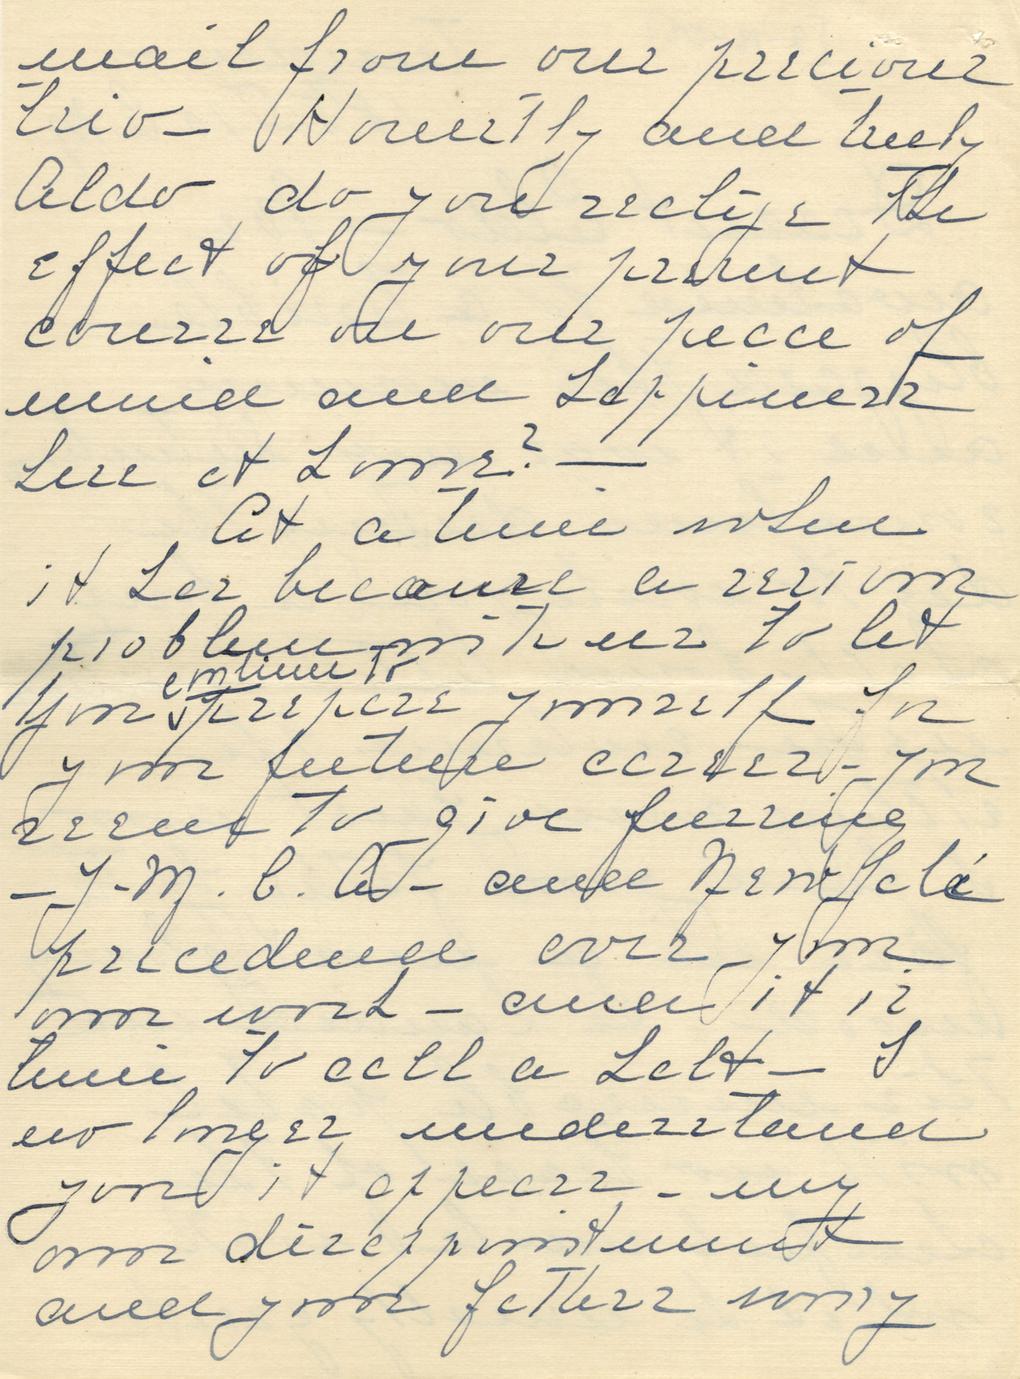 mail from our precious
trio – Honestly and truly
Aldo do you realize the
effect of your present
course on our peace of
mind and happiness
here at home? –
At a time when
it has because a serious
problem with us to let
you continue to prepare yourself for
your future career – you
seem to give fussing
– Y. M. C. A – and
precedence over your
own work – and it is
time to call a halt – I
no longer understand
you it appears – my
own disappointment
and your fathers worry